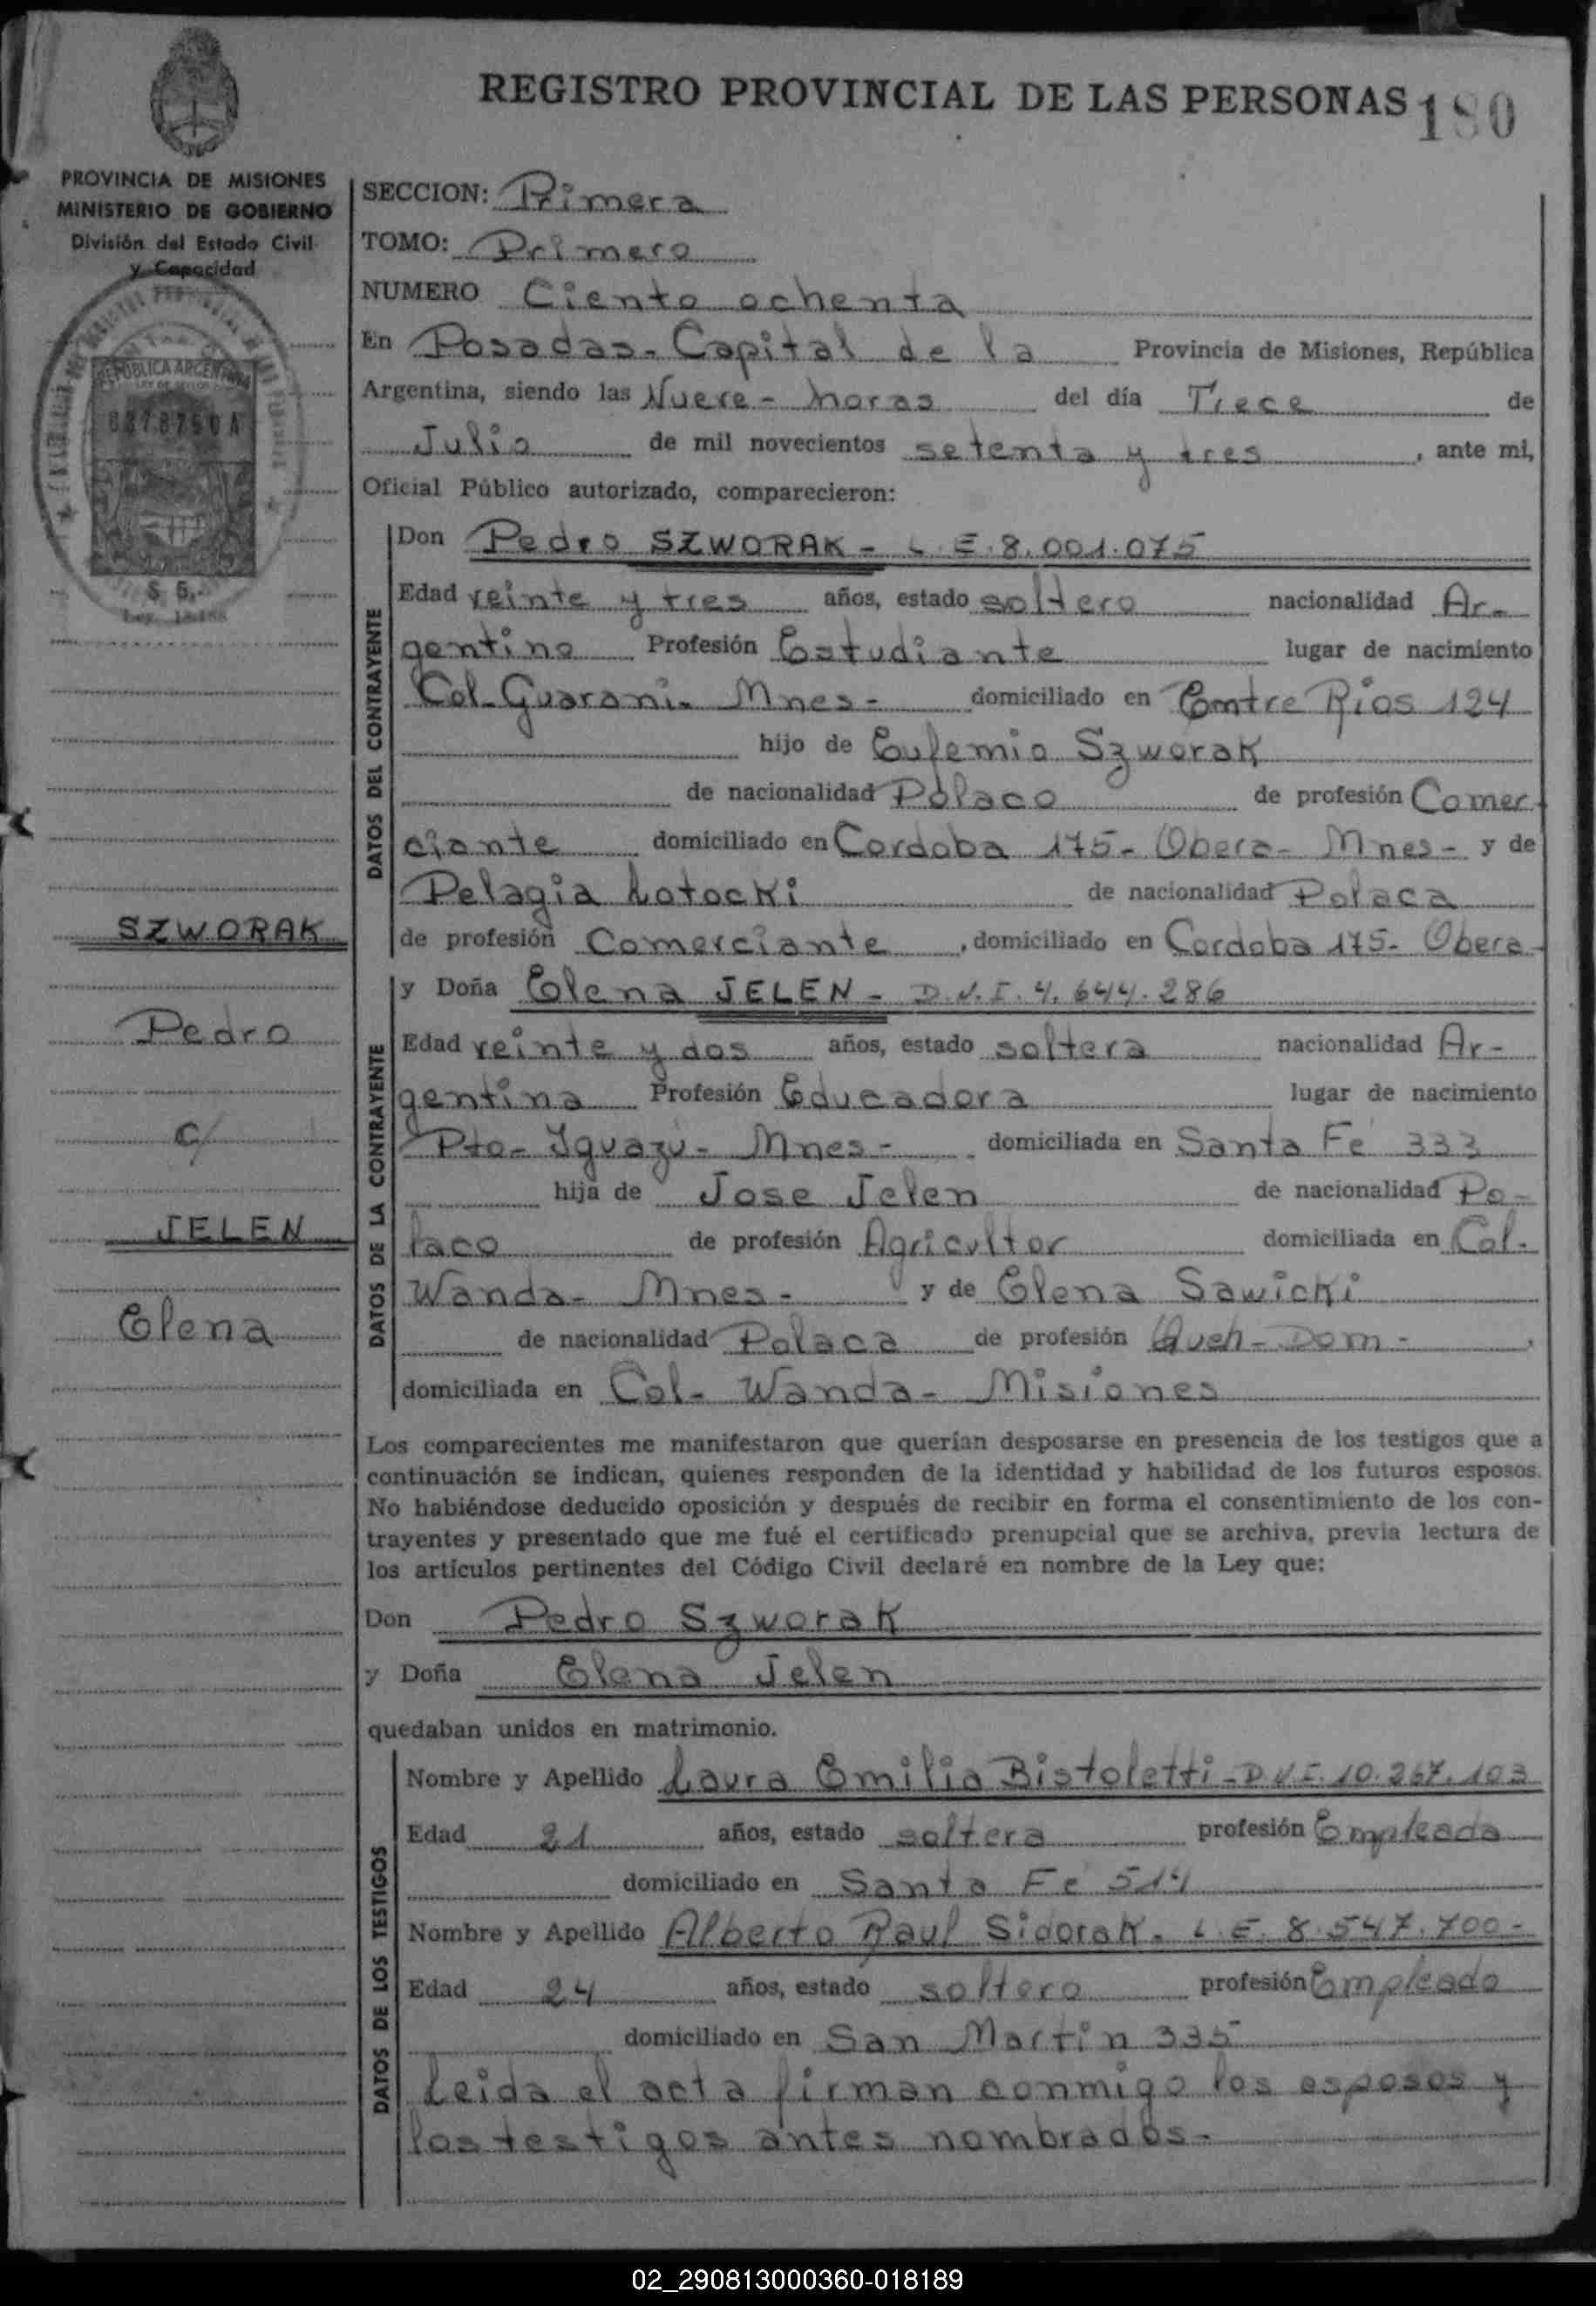 REGISTRO PROVINCIAL DE LAS PERSONAS 180
PROVINCIA DE MISIONES
MINISTERIO DE GOBIERNO
División del Estado Civil
y Capacidad
REPUBLICA ARGENTINA
$ 5,-
SECCION: Primera
TOMO: Primero
NUMERO Ciento ochenta
En Posadas - Capital de la Provincia de Misiones, República
Argentina, siendo las Nueve - horas del día Trece de
Julio de mil novecientos setenta y tres, ante mi,
Oficial Público autorizado, comparecieron:
DATOS DEL CONTRAYENTE
Don Pedro SZWORAK - L.E. 8.001.075
Edad veinte y tres años, estado soltero nacionalidad Ar-
gentino Profesión Estudiante lugar de nacimiento
Col. Guarani - Mnes - domiciliado en Entre Rios 124
hijo de Eufemio Szworak
de nacionalidad Polaco de profesión Comer-
ciante domiciliado en Cordoba 175 - Obera - Mnes - y de
Pelagia Lotocki de nacionalidad Polaca
de profesión Comerciante, domiciliado en Cordoba 175 - Obera -
SZWORAK
Pedro
c/
JELEN
Elena
DATOS DE LA CONTRAYENTE
y Doña Elena JELEN - D.N.I. 4.644.286
Edad veinte y dos años, estado soltera nacionalidad Ar-
gentina Profesión Educadora lugar de nacimiento
Pto - Iguazu - Mnes - domiciliada en Santa Fe 333
hija de Jose Jelen de nacionalidad Po-
laco de profesión Agricultor domiciliada en Col.
Wanda - Mnes - y de Elena Sawicki
de nacionalidad Polaca de profesión Queh - Dom -,
domiciliada en Col - Wanda - Misiones
Los comparecientes me manifestaron que querían desposarse en presencia de los testigos que a
continuación se indican, quienes responden de la identidad y habilidad de los futuros esposos.
No habiéndose deducido oposición y después de recibir en forma el consentimiento de los con-
trayentes y presentado que me fué el certificado prenupcial que se archiva, previa lectura de
los artículos pertinentes del Código Civil declaré en nombre de la Ley que:
Don Pedro Szworak
y Doña Elena Jelen
quedaban unidos en matrimonio.
DATOS DE LOS TESTIGOS
Nombre y Apellido Laura Emilia Bistoletti - D.N.I. 10.267.103
Edad 21 años, estado soltera profesión Empleada
domiciliado en Santa Fe 514
Nombre y Apellido Alberto Raul Sidorak - L.E. 8.547.700 -
Edad 24 años, estado soltero profesión Empleado
domiciliado en San Martin 335
Leida el acta firman conmigo los esposos y
los testigos antes nombrados -
02_290813000360-018189